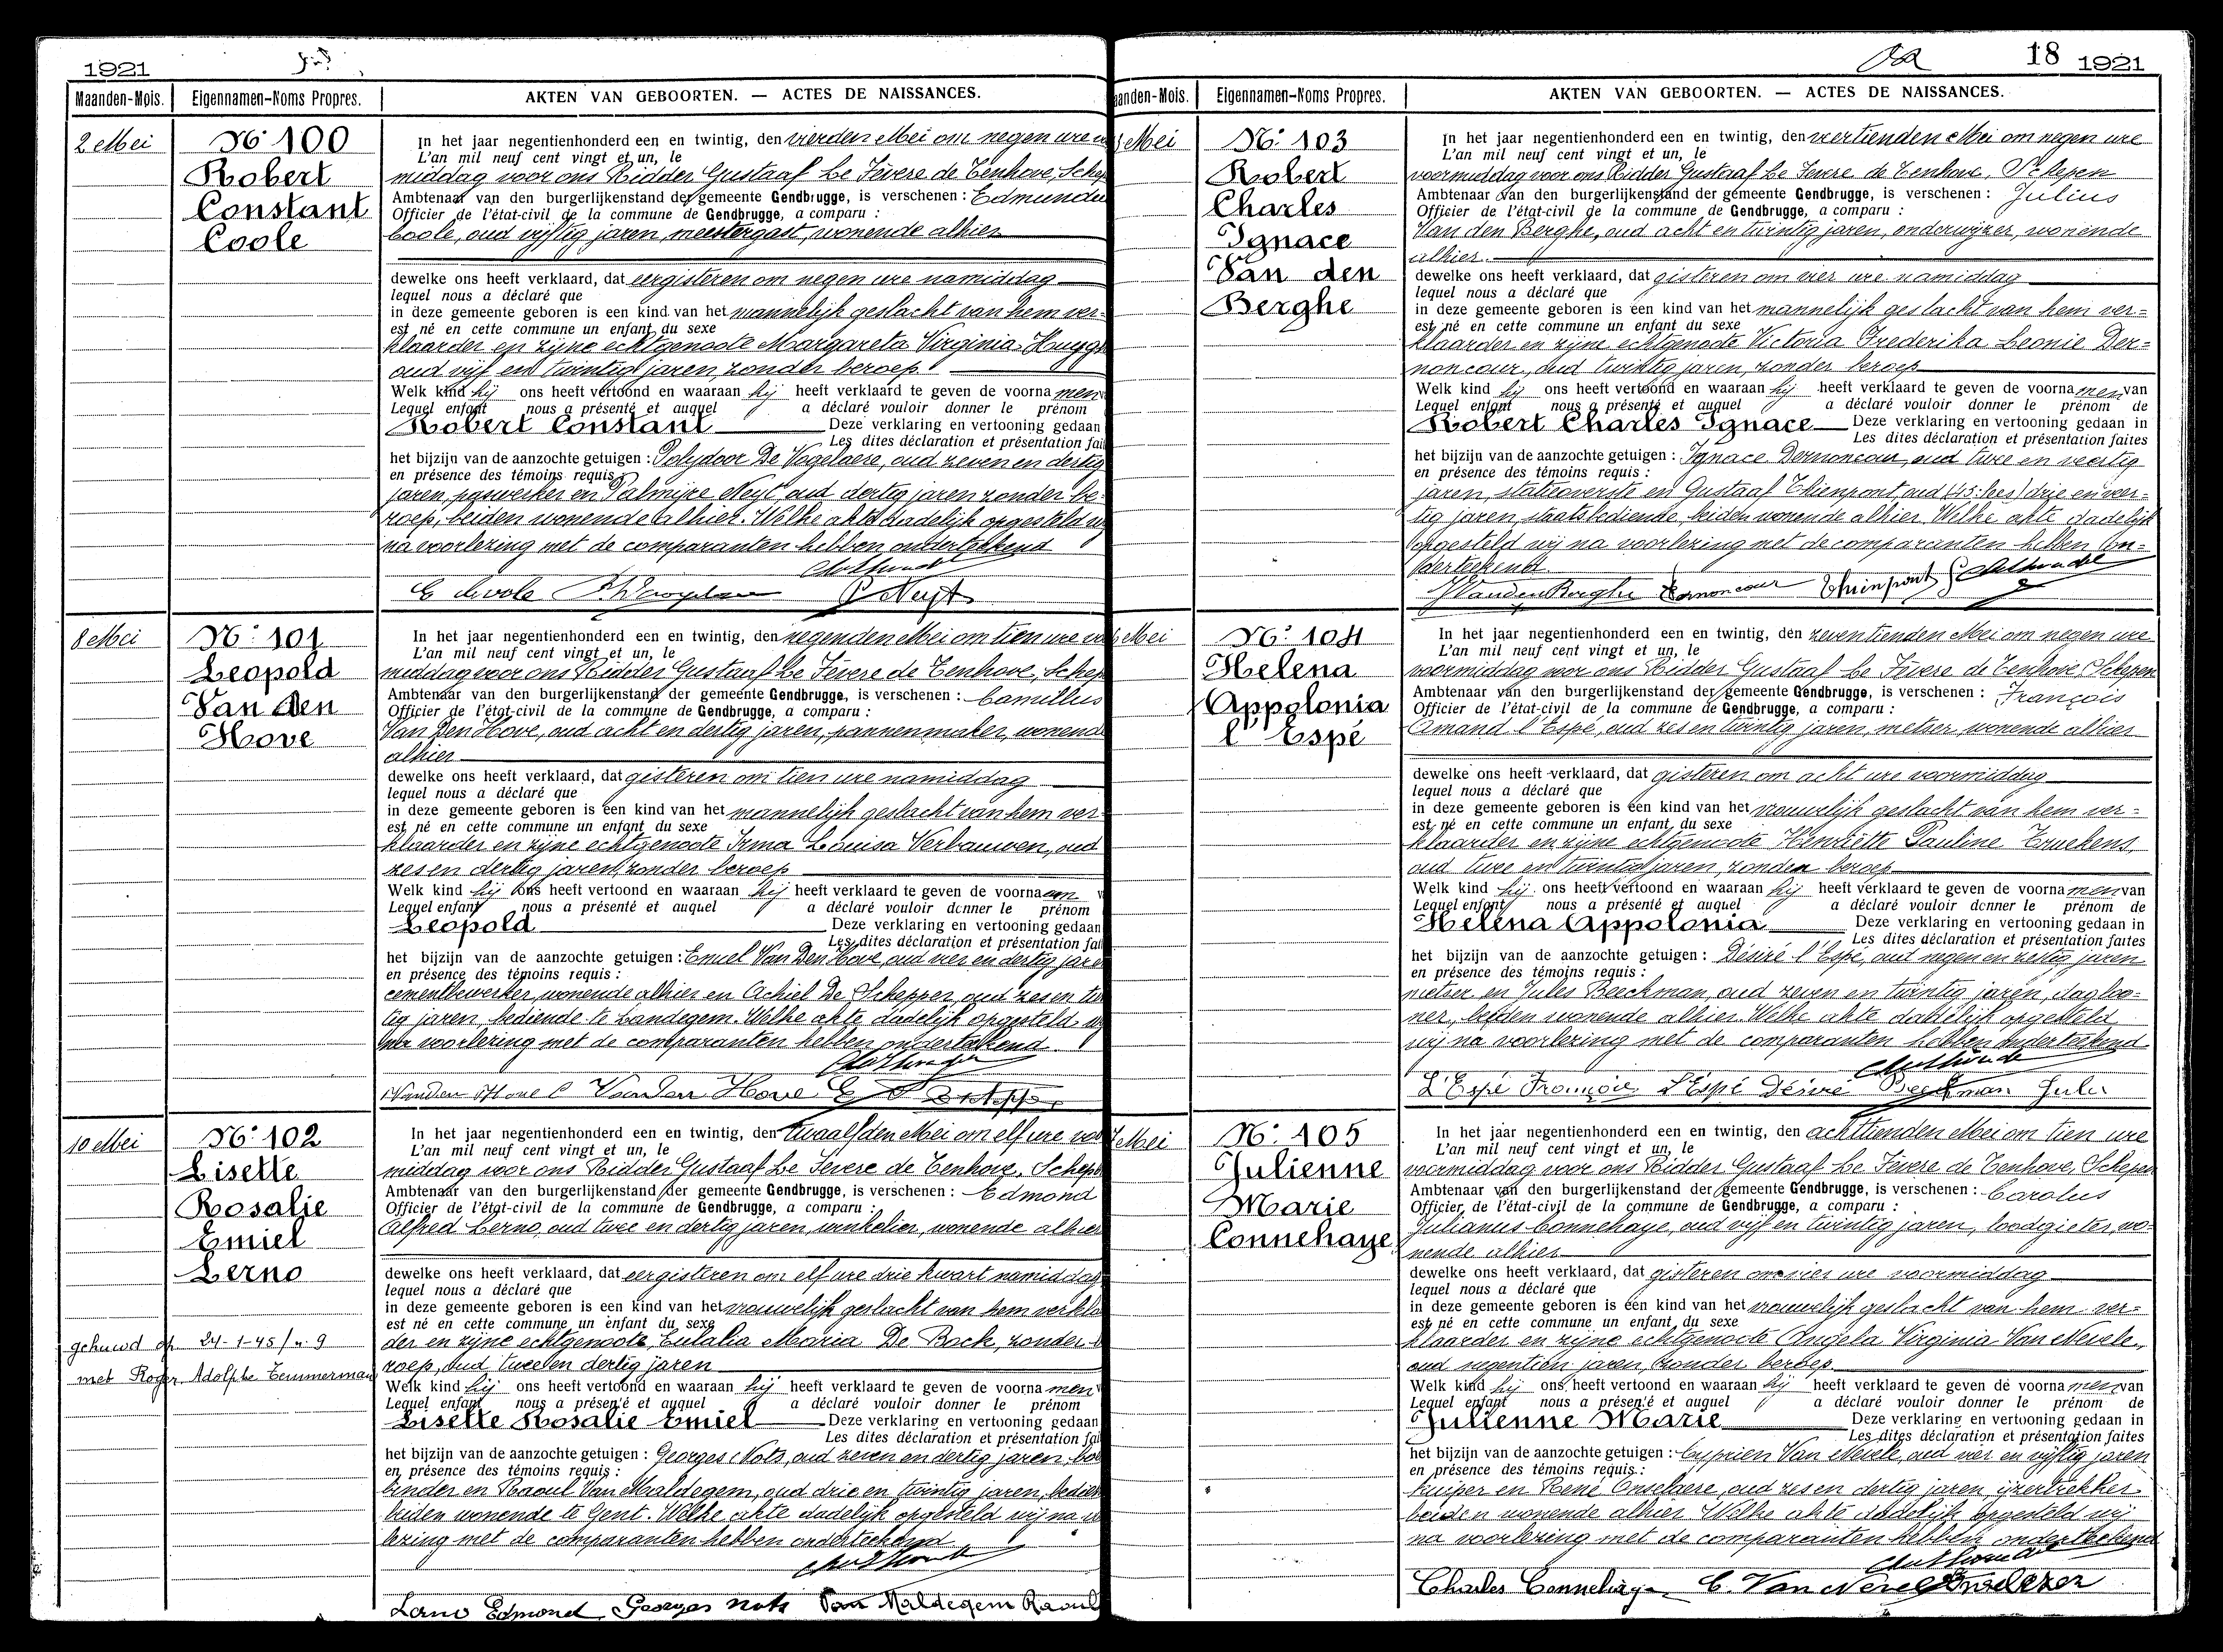 1921
Maanden-Mois.
Eigennamen-Noms Propres.
AKTEN VAN GEBOORTEN. — ACTES DE NAISSANCES.
2 Mei
No 100
Robert
Constant
Coole
In het jaar negentienhonderd een en twintig, den vierden Mei om negen ure
L'an mil neuf cent vingt et un, le
middag voor ons Ridder Gustaaf Le Fèvere de Tenhove, Schep
Ambtenaar van den burgerlijkenstand der gemeente Gendbrugge, is verschenen : Edmundu
Officier de l'état-civil de la commune de Gendbrugge, a comparu :
Coole, oud vijftig jaren, meestergast, wonende alhier
dewelke ons heeft verklaard, dat eergisteren om negen ure namiddag
lequel nous a déclaré que
in deze gemeente geboren is een kind van het mannelijk geslacht van hem ver-
est né en cette commune un enfant du sexe
klaarder en zijne echtgenoote Margareta Virginia Huygh
oud vijf en twintig jaren, zonder beroep
Welk kind hij ons heeft vertoond en waaraan hij heeft verklaard te geven de voornamen
Lequel enfant nous a présenté et auquel a déclaré vouloir donner le prénom
Robert Constant Deze verklaring en vertooning gedaan
Les dites déclaration et présentation fai
het bijzijn van de aanzochte getuigen : Polydoor De Vogelaere, oud zeven en dertig
en présence des témoins requis :
jaren, paswerker en Palmijre Neyt, oud dertig jaren zonder be-
roep, beiden wonende alhier. Welke akte dadelijk opgesteld w
na voorlezing met de comparanten hebben onderteekend
8 Mei
No: 101
Leopold
Van den
Hove
In het jaar negentienhonderd een en twintig, den negenden Mei om tien ure vo
L'an mil neuf cent vingt et un, le
middag voor ons Ridder Gustaaf Le Fèvere de Tenhove, Schep
Ambtenaar van den burgerlijkenstand der gemeente Gendbrugge, is verschenen : Camillus
Officier de l'état-civil de la commune de Gendbrugge, a comparu :
Van Den Hove, oud acht en dertig jaren, pannenmaker, wonend
alhier
dewelke ons heeft verklaard, dat gisteren om tien ure namiddag
lequel nous a déclaré que
in deze gemeente geboren is een kind van het mannelijk geslacht van hem ver-
est né en cette commune un enfant du sexe
klaarder en zijne echtgenoote Irma Louisa Verbauwen, oud
zes en dertig jaren, zonder beroep
Welk kind hij ons heeft vertoond en waaraan hij heeft verklaard te geven de voornaam
Lequel enfant nous a présenté et auquel a déclaré vouloir donner le prénom
Leopold Deze verklaring en vertooning gedaan
Les dites déclaration et présentation fai
het bijzijn van de aanzochte getuigen : Emiel Van Den Hove, oud vier en dertig jare
en présence des témoins requis :
cementbewerker, wonende alhier en Achiel De Schepper, oud zes en tw
tig jaren bediende te Landegem. Welke akte dadelijk opgesteld w
na voorlezing met de comparanten hebben onderteekend
Vanden Hove C Vanden Hove E
10 Mei
No: 102
Lisette
Rosalie
Emiel
Lerno
gehuwd op 24-1-45 / n. 9
met Roger Adolphe Temmerman
In het jaar negentienhonderd een en twintig, den twaalfden Mei om elf ure vo
L'an mil neuf cent vingt et un, le
middag voor ons Ridder Gustaaf Le Fèvere de Tenhove, Schep
Ambtenaar van den burgerlijkenstand der gemeente Gendbrugge, is verschenen : Edmond
Officier de l'état-civil de la commune de Gendbrugge, a comparu :
Alfred Lerno, oud twee en dertig jaren, winkelier, wonende alhier
dewelke ons heeft verklaard, dat eergisteren om elf ure drie kwart namiddag
lequel nous a déclaré que
in deze gemeente geboren is een kind van het vrouwelijk geslacht van hem verkla
est né en cette commune un enfant du sexe
der en zijne echtgenoote Eulalia Maria De Bock, zonder b
roep, oud twee en dertig jaren
Welk kind hij ons heeft vertoond en waaraan hij heeft verklaard te geven de voornamen
Lequel enfant nous a présenté et auquel a déclaré vouloir donner le prénom
Lisette Rosalie Emiel Deze verklaring en vertooning gedaan
Les dites déclaration et présentation fai
het bijzijn van de aanzochte getuigen : Georges Nots, oud zeven en dertig jaren, boe
en présence des témoins requis :
binder en Raoul Van Maldegem, oud drie en twintig jaren, bedien
beiden wonende te Gent. Welke akte dadelijk opgesteld wij na v
lezing met de comparanten hebben onderteekend
Lerno Edmond Georges Nots Van Maldegem Raoul
18 1921
aanden-Mois.
Eigennamen-Noms Propres.
AKTEN VAN GEBOORTEN. — ACTES DE NAISSANCES.
3 Mei
No: 103
Robert
Charles
Ignace
Van den
Berghe
In het jaar negentienhonderd een en twintig, den veertienden Mei om negen ure
L'an mil neuf cent vingt et un, le
voormiddag voor ons Ridder Gustaaf Le Fèvere de Tenhove, Schepen
Ambtenaar van den burgerlijkenstand der gemeente Gendbrugge, is verschenen : Julius
Officier de l'état-civil de la commune de Gendbrugge, a comparu :
Van den Berghe, oud acht en twintig jaren, onderwijzer, wonende
alhier
dewelke ons heeft verklaard, dat gisteren om vier ure namiddag
lequel nous a déclaré que
in deze gemeente geboren is een kind van het mannelijk geslacht van hem ver=
est né en cette commune un enfant du sexe
klaarder en zijne echtgenoote Victoria Frederika Leonie Der=
noncour, oud twintig jaren, zonder beroep
Welk kind hij ons heeft vertoond en waaraan hij heeft verklaard te geven de voornamen van
Lequel enfant nous a présenté et auquel a déclaré vouloir donner le prénom de
Robert Charles Ignace Deze verklaring en vertooning gedaan in
Les dites déclaration et présentation faites
het bijzijn van de aanzochte getuigen : Ignace Dernoncour, oud twee en veertig
en présence des témoins requis :
jaren, statieoverste en Gustaaf Thienpont, oud drie en veer=
tig jaren, staatsbediende, beiden wonende alhier. Welke akte dadelijk
opgesteld wij na voorlezing met de comparanten hebben on=
derteekend
J Van den Berghe Dernoncour Thienpont G
6 Mei
No: 104
Helena
Appolonia
l'Espé
In het jaar negentienhonderd een en twintig, den zeventienden Mei om negen ure
L'an mil neuf cent vingt et un, le
voormiddag voor ons Ridder Gustaaf Le Fèvere de Tenhove, Schepen
Ambtenaar van den burgerlijkenstand der gemeente Gendbrugge, is verschenen : François
Officier de l'état-civil de la commune de Gendbrugge, a comparu :
Amand l'Espé, oud zes en twintig jaren, metser, wonende alhier
dewelke ons heeft verklaard, dat gisteren om acht ure voormiddag
lequel nous a déclaré que
in deze gemeente geboren is een kind van het vrouwelijk geslacht van hem ver=
est né en cette commune un enfant du sexe
klaarder en zijne echtgenoote Henriëtte Pauline
oud twee en twintig jaren, zonder beroep
Welk kind hij ons heeft vertoond en waaraan hij heeft verklaard te geven de voornamen van
Lequel enfant nous a présenté et auquel a déclaré vouloir donner le prénom de
Helena Appolonia Deze verklaring en vertooning gedaan in
Les dites déclaration et présentation faites
het bijzijn van de aanzochte getuigen : Désiré l'Espé, oud negen en zestig jaren
en présence des témoins requis :
metser en Jules Beeckman, oud zeven en twintig jaren, dagloo=
ner, beiden wonende alhier. Welke akte dadelijk opgesteld
wij na voorlezing met de comparanten hebben onderteekend
L'Espé François L'Espé Désiré Beeckman Jules
7 Mei
No: 105
Julienne
Marie
Connehaye
In het jaar negentienhonderd een en twintig, den achttienden Mei om tien ure
L'an mil neuf cent vingt et un, le
voormiddag voor ons Ridder Gustaaf Le Fèvere de Tenhove, Schepen
Ambtenaar van den burgerlijkenstand der gemeente Gendbrugge, is verschenen : Carolus
Officier de l'état-civil de la commune de Gendbrugge, a comparu :
Julianus Connehaye, oud vijf en twintig jaren, loodgieter, wo=
nende alhier
dewelke ons heeft verklaard, dat gisteren om vier ure voormiddag
lequel nous a déclaré que
in deze gemeente geboren is een kind van het vrouwelijk geslacht van hem ver=
est né en cette commune un enfant du sexe
klaarder en zijne echtgenoote Angela Virginia Van Nevele,
oud negentien jaren, zonder beroep
Welk kind hij ons heeft vertoond en waaraan hij heeft verklaard te geven de voornamen van
Lequel enfant nous a présenté et auquel a déclaré vouloir donner le prénom de
Julienne Marie Deze verklaring en vertooning gedaan in
Les dites déclaration et présentation faites
het bijzijn van de aanzochte getuigen : Cyprien Van Nevele, oud vier en vijftig jaren
en présence des témoins requis :
kuiper en René Onselaere, oud zes en dertig jaren, ijzertrekker
beiden wonende alhier. Welke akte dadelijk opgesteld wij
na voorlezing met de comparanten hebben onderteekend
Charles Connehaye C. Van Nevele